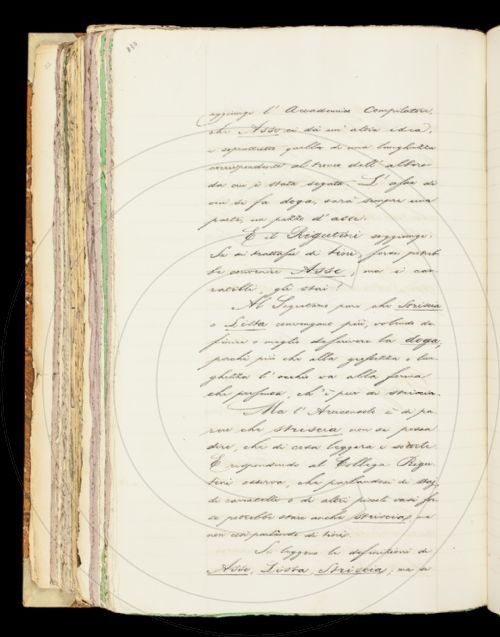 aggiunge l' Accademico Compilatore,
che Asse ci dà un' altra idea,
e soprattutto quella di una lunghezza
corrispondente al tronco dell' albero
da cui è stata segata. L' asse di
cui si fa doga, sarà sempre una
parte, un pezzo d' asse.
E il Rigutini soggiunge:
Se si trattasse di tini, forse potreb-
be convenire Asse, ma i ca-
ratelli, gli stai?
Al Segretario pare che Striscia
o Lista convengano più, volendo de-
finire o meglio descrivere la doga,
perché più che alla grossezza e lun-
ghezza l' occhio va alla forma
che ch' è pur di striscia.
Ma l' Arciconsolo è di pa-
rere che striscia non si possa
dire, che di cosa leggera e sottile.
E rispondendo al Collega Rigu-
tini osserva, che parlandosi di
di caratelli o di altri piccoli vasi for-
se potrebbe stare anche striscia, ma
non così parlando di tini.
Si leggono le definizioni di
Asse, Lista, Striscia, ma si